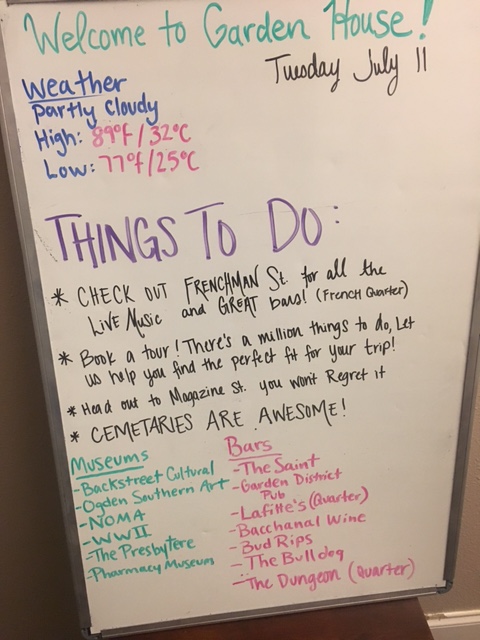 Welcome to Garden House!
Tuesday July 11
Weather
Partly Cloudy
High: 89°F/32°C
Low: 77°F/25°C
THINGS TO DO:
* CHECK OUT FRENCHMAN St. for all the
LIVE Music and GREAT bars! (French Quarter)
* Book a tour! There's a million things to do, Let
us help you find the perfect fit for your trip!
* Head out to Magazine St. you won't Regret it
* CEMETARIES ARE AWESOME!
Museums
-Backstreet Cultural
-Ogden Southern Art
-NOMA
-WWII
-The Presbytere
-Pharmacy Museum
Bars
-The Saint
-Garden District
Pub
-Lafitte's (Quarter)
-Bacchanal Wine
-Bud Rips
-The Bulldog
-The Dungeon (Quarter)